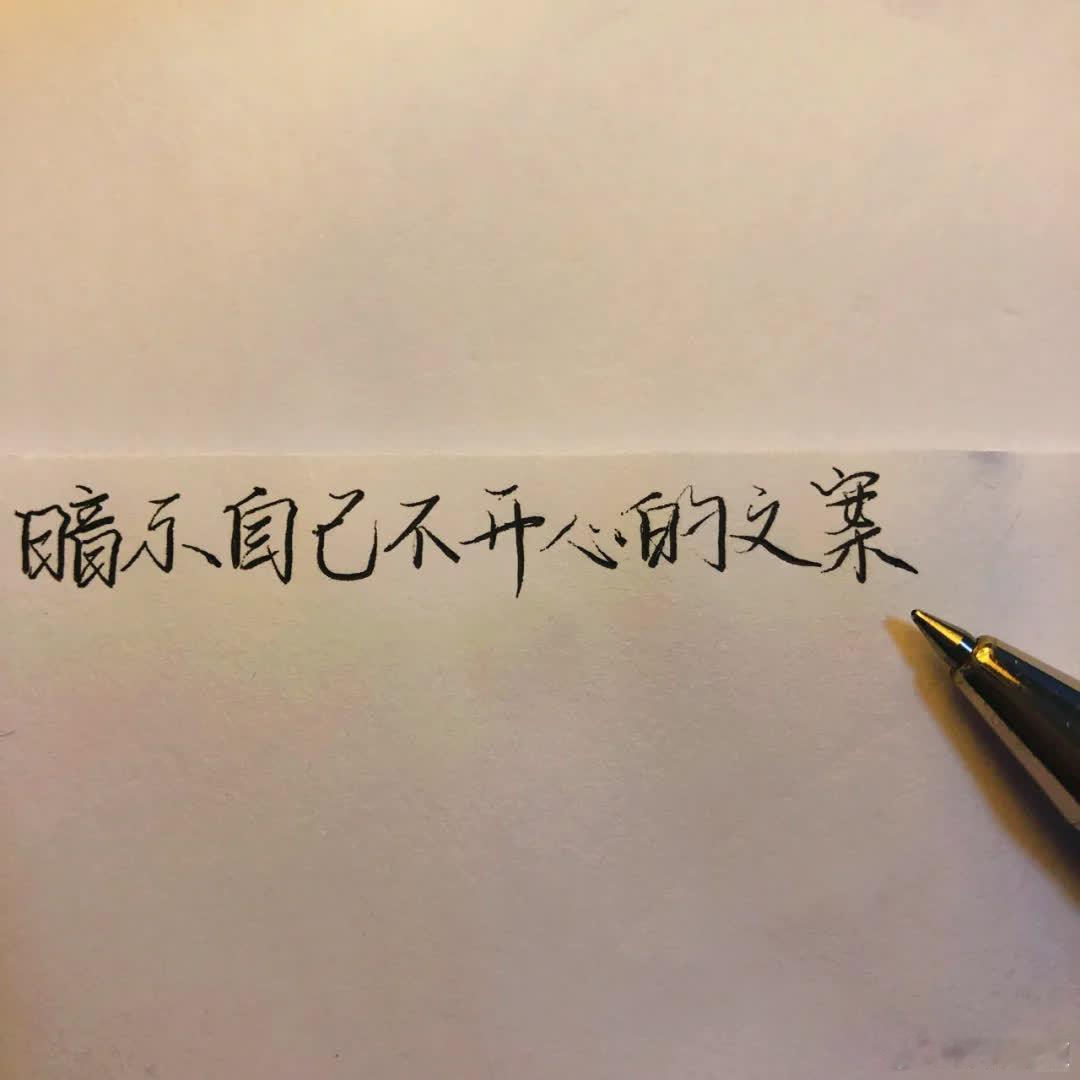 暗示自己不开心的文案